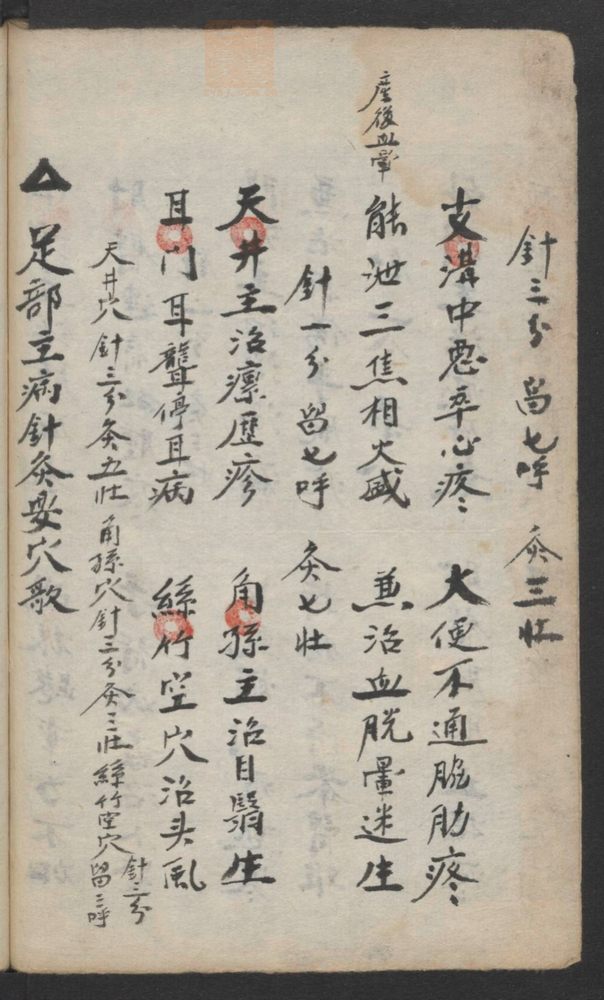 針三分 留七呼 灸三壮
支溝中惡卒心疼 大便不通脇肋疼
産後血暈
能泄三焦相火盛 兼治血脱暈迷生
針一分 留七呼 灸七壮
天井主治瘰歷疹 角孫主治目翳生
耳門耳聾停耳病 絲竹空穴治头風
天井穴針三分灸五壮 角孫穴針三分灸三壮 絲竹空穴針三分留三呼
▲足部主病針灸要穴歌